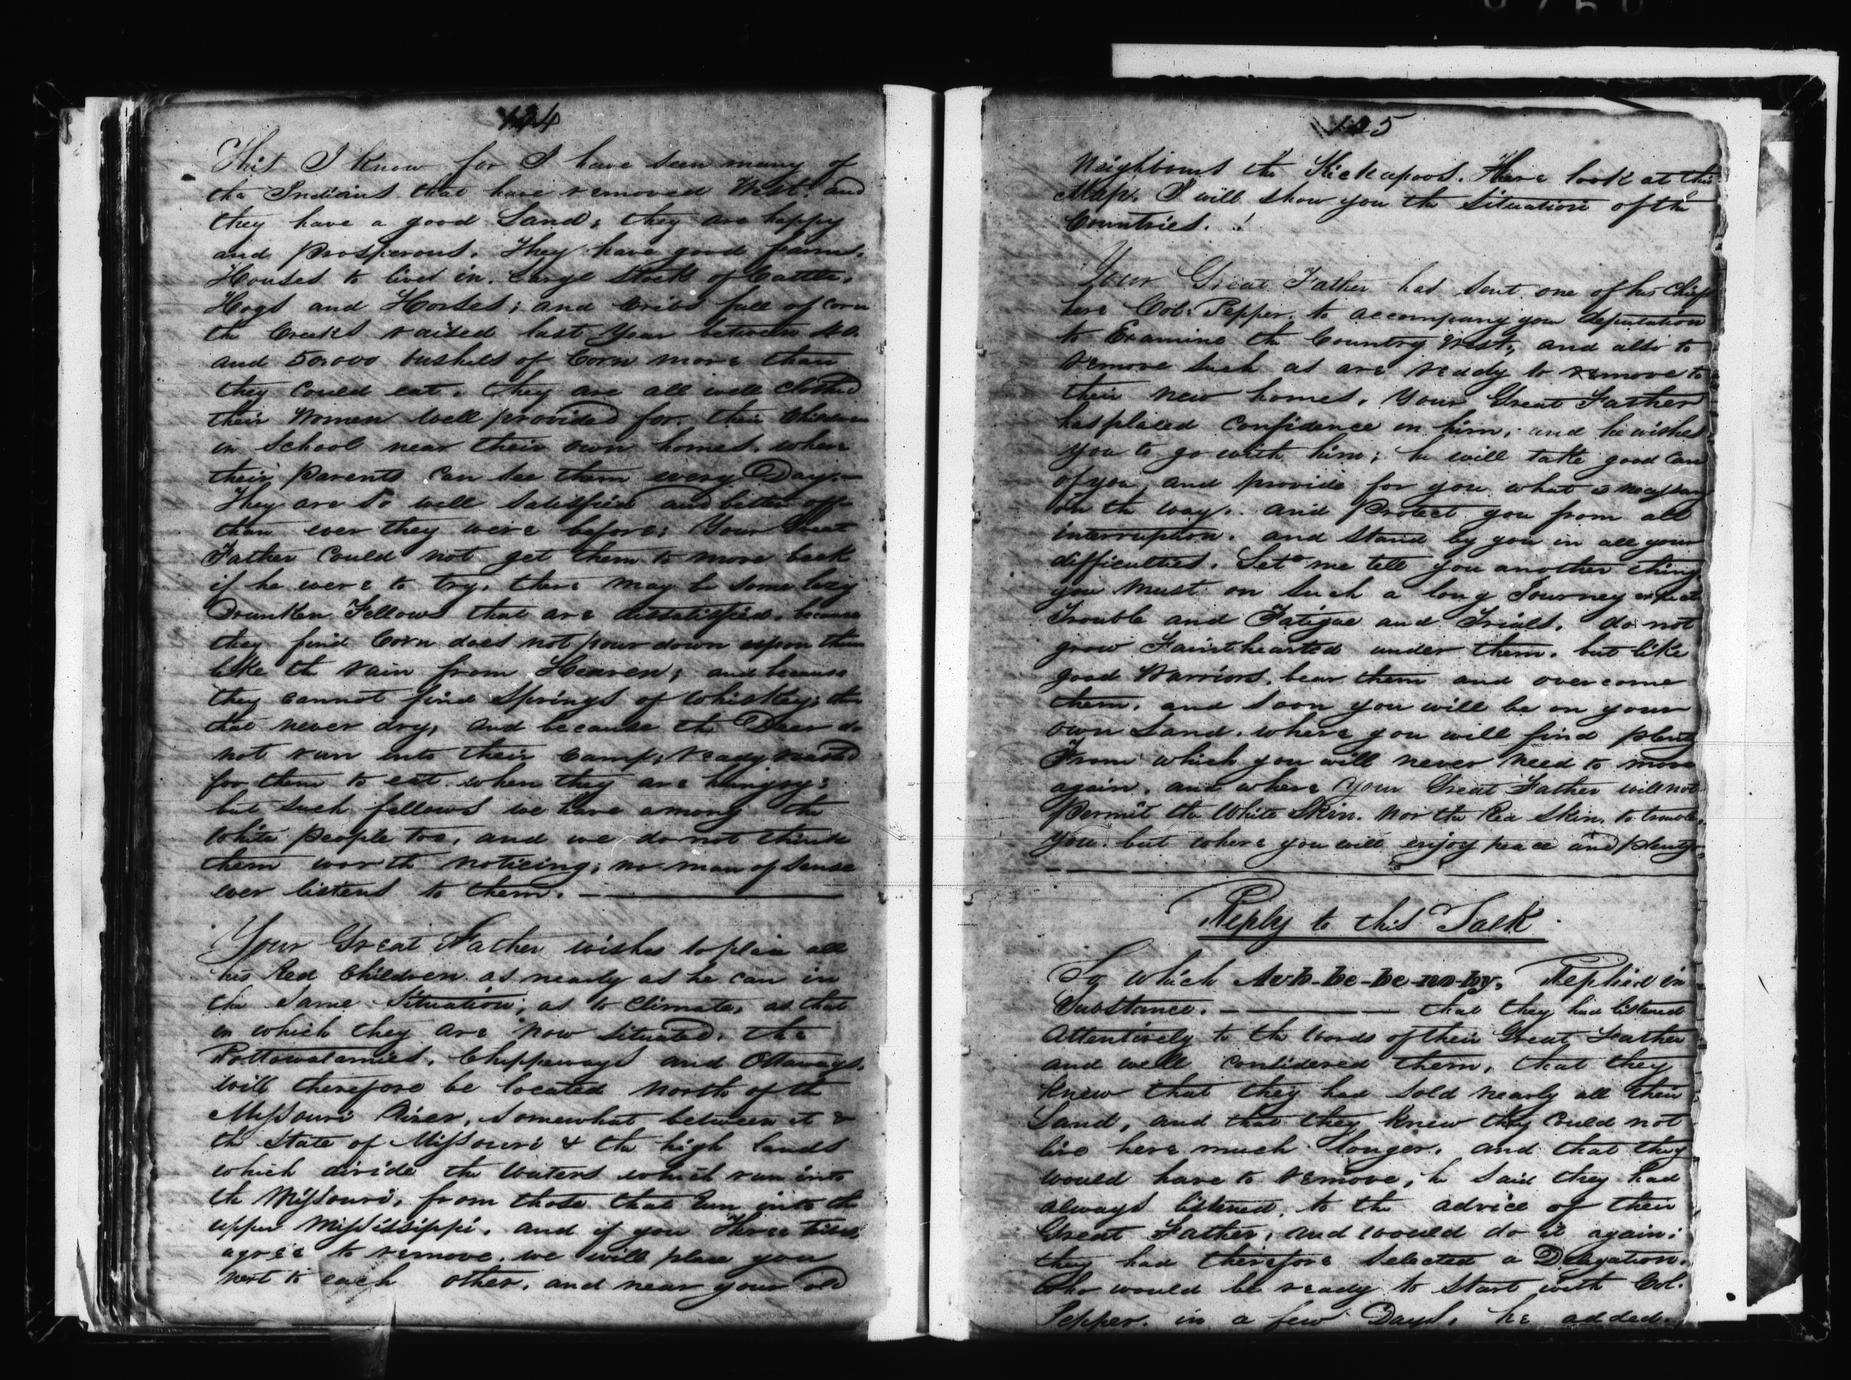 124
This I know for I have seen many of
the Indians that have removed West. and
they have a good Land; they are happy
and Prosperous. They have good farms.
Houses to live in. Large Stock of Cattle,
Hogs and Horses; and Cribs full of corn
the Creeks raised last Year between 40.
and 50.000 bushels of Corn more than
they could eat. they are all well clothed
their Women well provided for. their Children
in School near their own homes. where
their parents can see them every Day.—
They are so well satisfied and better off
than ever they were before; Your Great
Father could not get them to move back
if he were to try. there may be some lazy
Drunken Fellows that are dissatisfied. because
they find Corn does not pour down upon them
like the rain from Heaven; and because
they cannot find Springs of Whiskey;
that never dry, and because the Deer do
not run into their Camp, ready roasted
for them to eat when they are hungry;
but such fellows we have among the
White people too, and we do not think
them worth noticing; no man of sense
ever listens to them. —
Your Great Father wishes to place all
his Red Children as nearly as he can in
the Same Situation; as to Climate, as that
in which they are now situated. the
Pottawatamies, Chippeways and Ottaways.
will therefore be located North of the
Missouri River, somewhat between it &
the State of Missouri & the high lands
which divide the waters which run into
the Missouri, from those that run into the
upper Mississippi. and if you Three tribes
agree to remove. we will place you
next to each other. and near your old
125
Neighbours the Kickapoos. Here look at this
Map. I will show you the situation of the
Countries. !
Your Great Father has sent one of his Chiefs
here Col: Pepper. to accompany you deputation
to Examine the Country West, and also to
remove such as are ready to remove to
their new homes. Your Great Father
has placed Confidence in him, and he wishes
you to go with him; he will take good care
of you, and provide for you what is necessary
on the way. and Protect you from all
interruption. and stand by you in all your
difficulties. Let me tell you another thing
you must on such a long Journey expect
Trouble and Fatigue and Trials. do not
grow Fainthearted under them. but like
good Warriors. bear them and overcome
them. and soon you will be on your
own Land. where you will find plenty
From which you will never need to move
again. and where Your Great Father will not
Permit the White Skin. Nor the Red Skin. to trouble
You. but where you will enjoy peace and plenty.
Reply to this Talk
To which Aub-be-be-no-by. Replied in
Substance. — that they had listened
Attentively to the words of their Great Father
and well considered them, that they
knew that they had sold nearly all their
Land, and that they knew they could not
live here much longer. and that they
would have to remove, he said they had
always listened. to the advice of their
Great Father, and would do it again:
they had therefore selected a Delagation.
who would be ready to start with Col.
Pepper. in a few Days. he added.